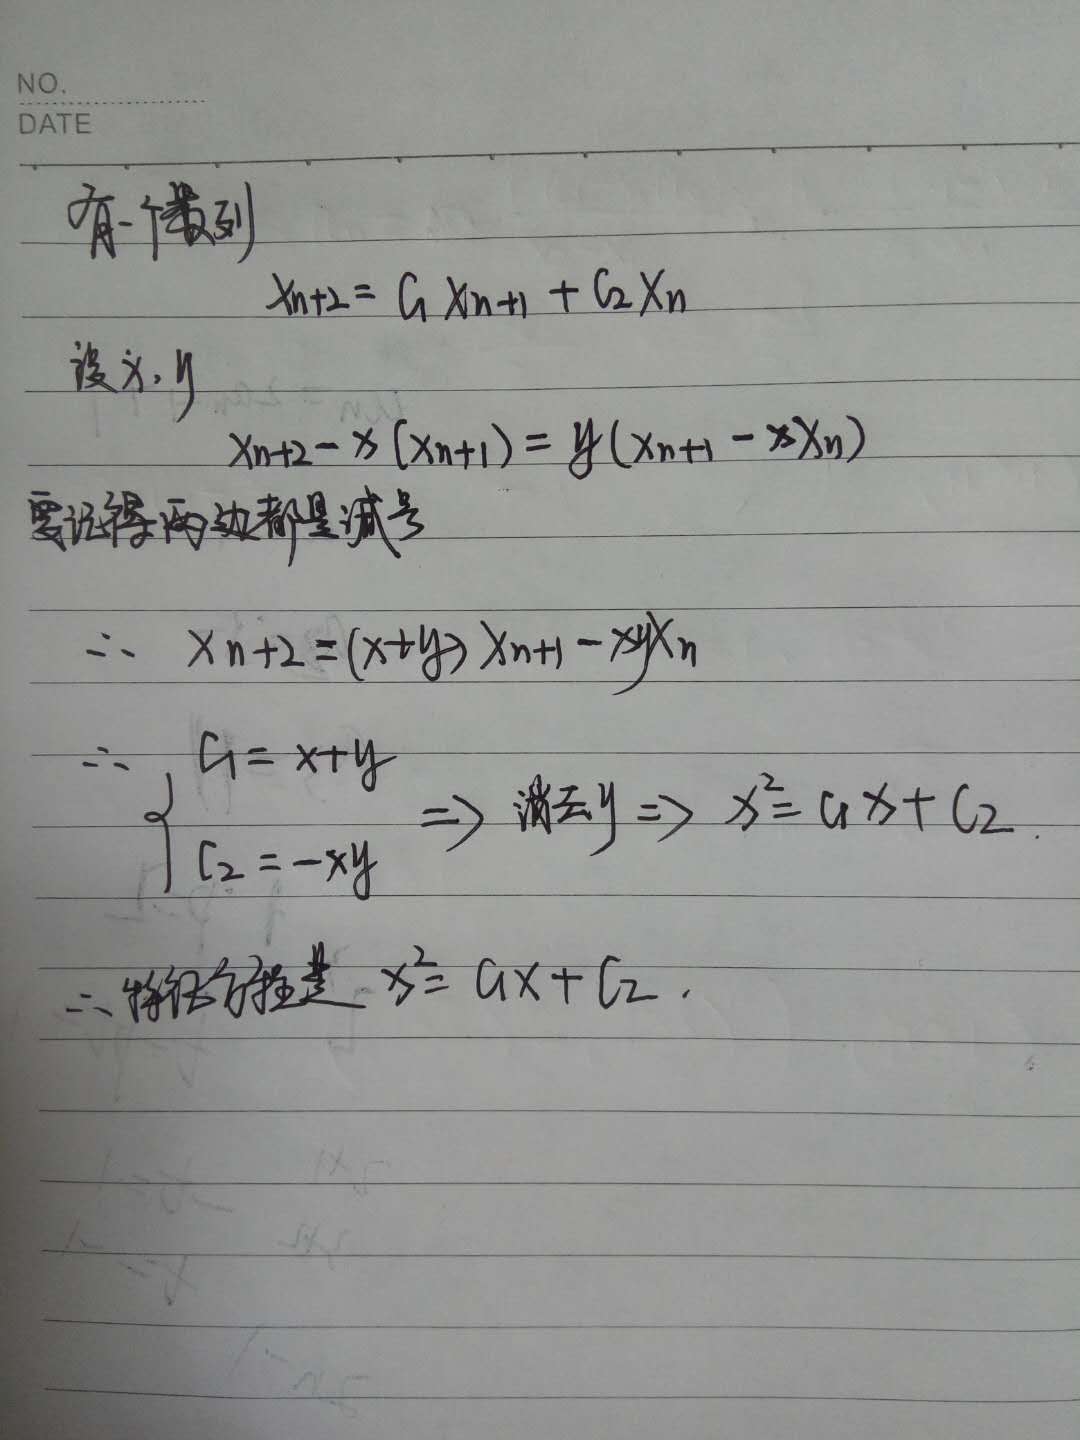 NO.
DATE
有一个数列
Xn+2 = C1 Xn+1 + C2 Xn
设 x, y
Xn+2 - x (Xn+1) = y (Xn+1 - xXn)
要记得两边都是减号
∴ Xn+2 = (x+y) Xn+1 - xyXn
∴ { C1 = x+y
C2 = -xy ⇒ 消去y ⇒ x² = C1 x + C2 .
∴ 特征方程是 x² = C1x + C2 .